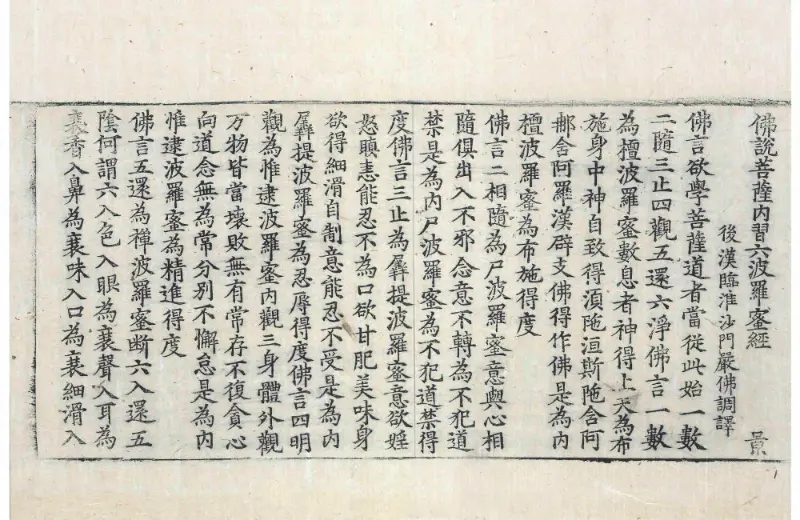 佛說菩薩內習六波羅蜜經　景
後漢臨淮沙門嚴佛調譯
佛言欲學菩薩道者當從此始一數
二隨三止四觀五還六淨佛言一數
為檀波羅蜜數息者神得上天為布
施身中神自致得湏陁洹斯陁含阿
那含阿羅漢辟支佛得作佛是為內
檀波羅蜜為布施得度
佛言二相隨為尸波羅蜜意與心相
隨俱出入不邪念意不轉為不犯道
禁是為內尸波羅蜜為不犯道禁得
度佛言三止為羼提波羅蜜意欲婬
怒瞋恚能忍不為口欲甘肥美味身
欲得細滑自制意能忍不受是為內
羼提波羅蜜為忍辱得度佛言四明
觀為惟逮波羅蜜內觀三身體外觀
万物皆當壞敗無有常存不復貪心
向道念無為常分別不懈怠是為內
惟逮波羅蜜為精進得度
佛言五還為禪波羅蜜断六入還五
陰何謂六入色入眼為衰聲入耳為
衰香入鼻為衰味入口為衰細滑入